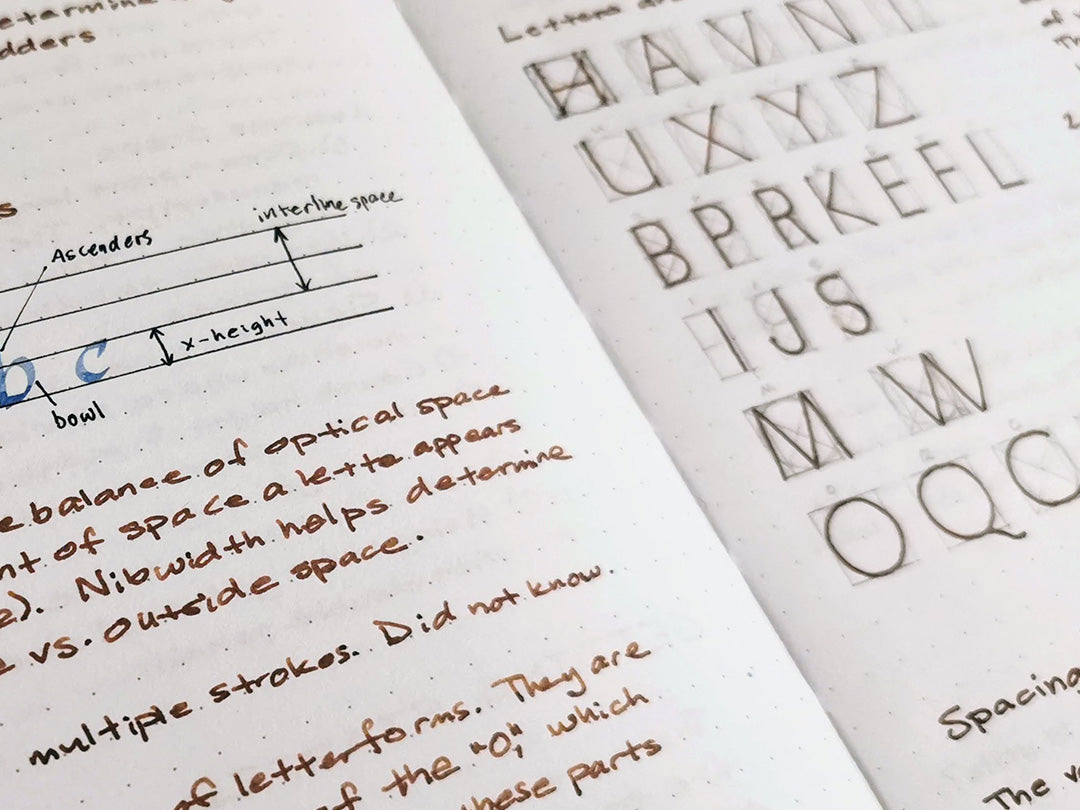 dders
s
interline space
Ascenders
x-height
b c
bowl
balance of optical space
nt of space a lette appears
e). Nibwidth helps determine
vs. outside space.
multiple strokes. Did not know.
of letterforms. They are
of the "O," which
these parts
Letters
H A V N
U X Y Z
B P R K E F L
I J S
M W
O Q C
2
Spacing
The